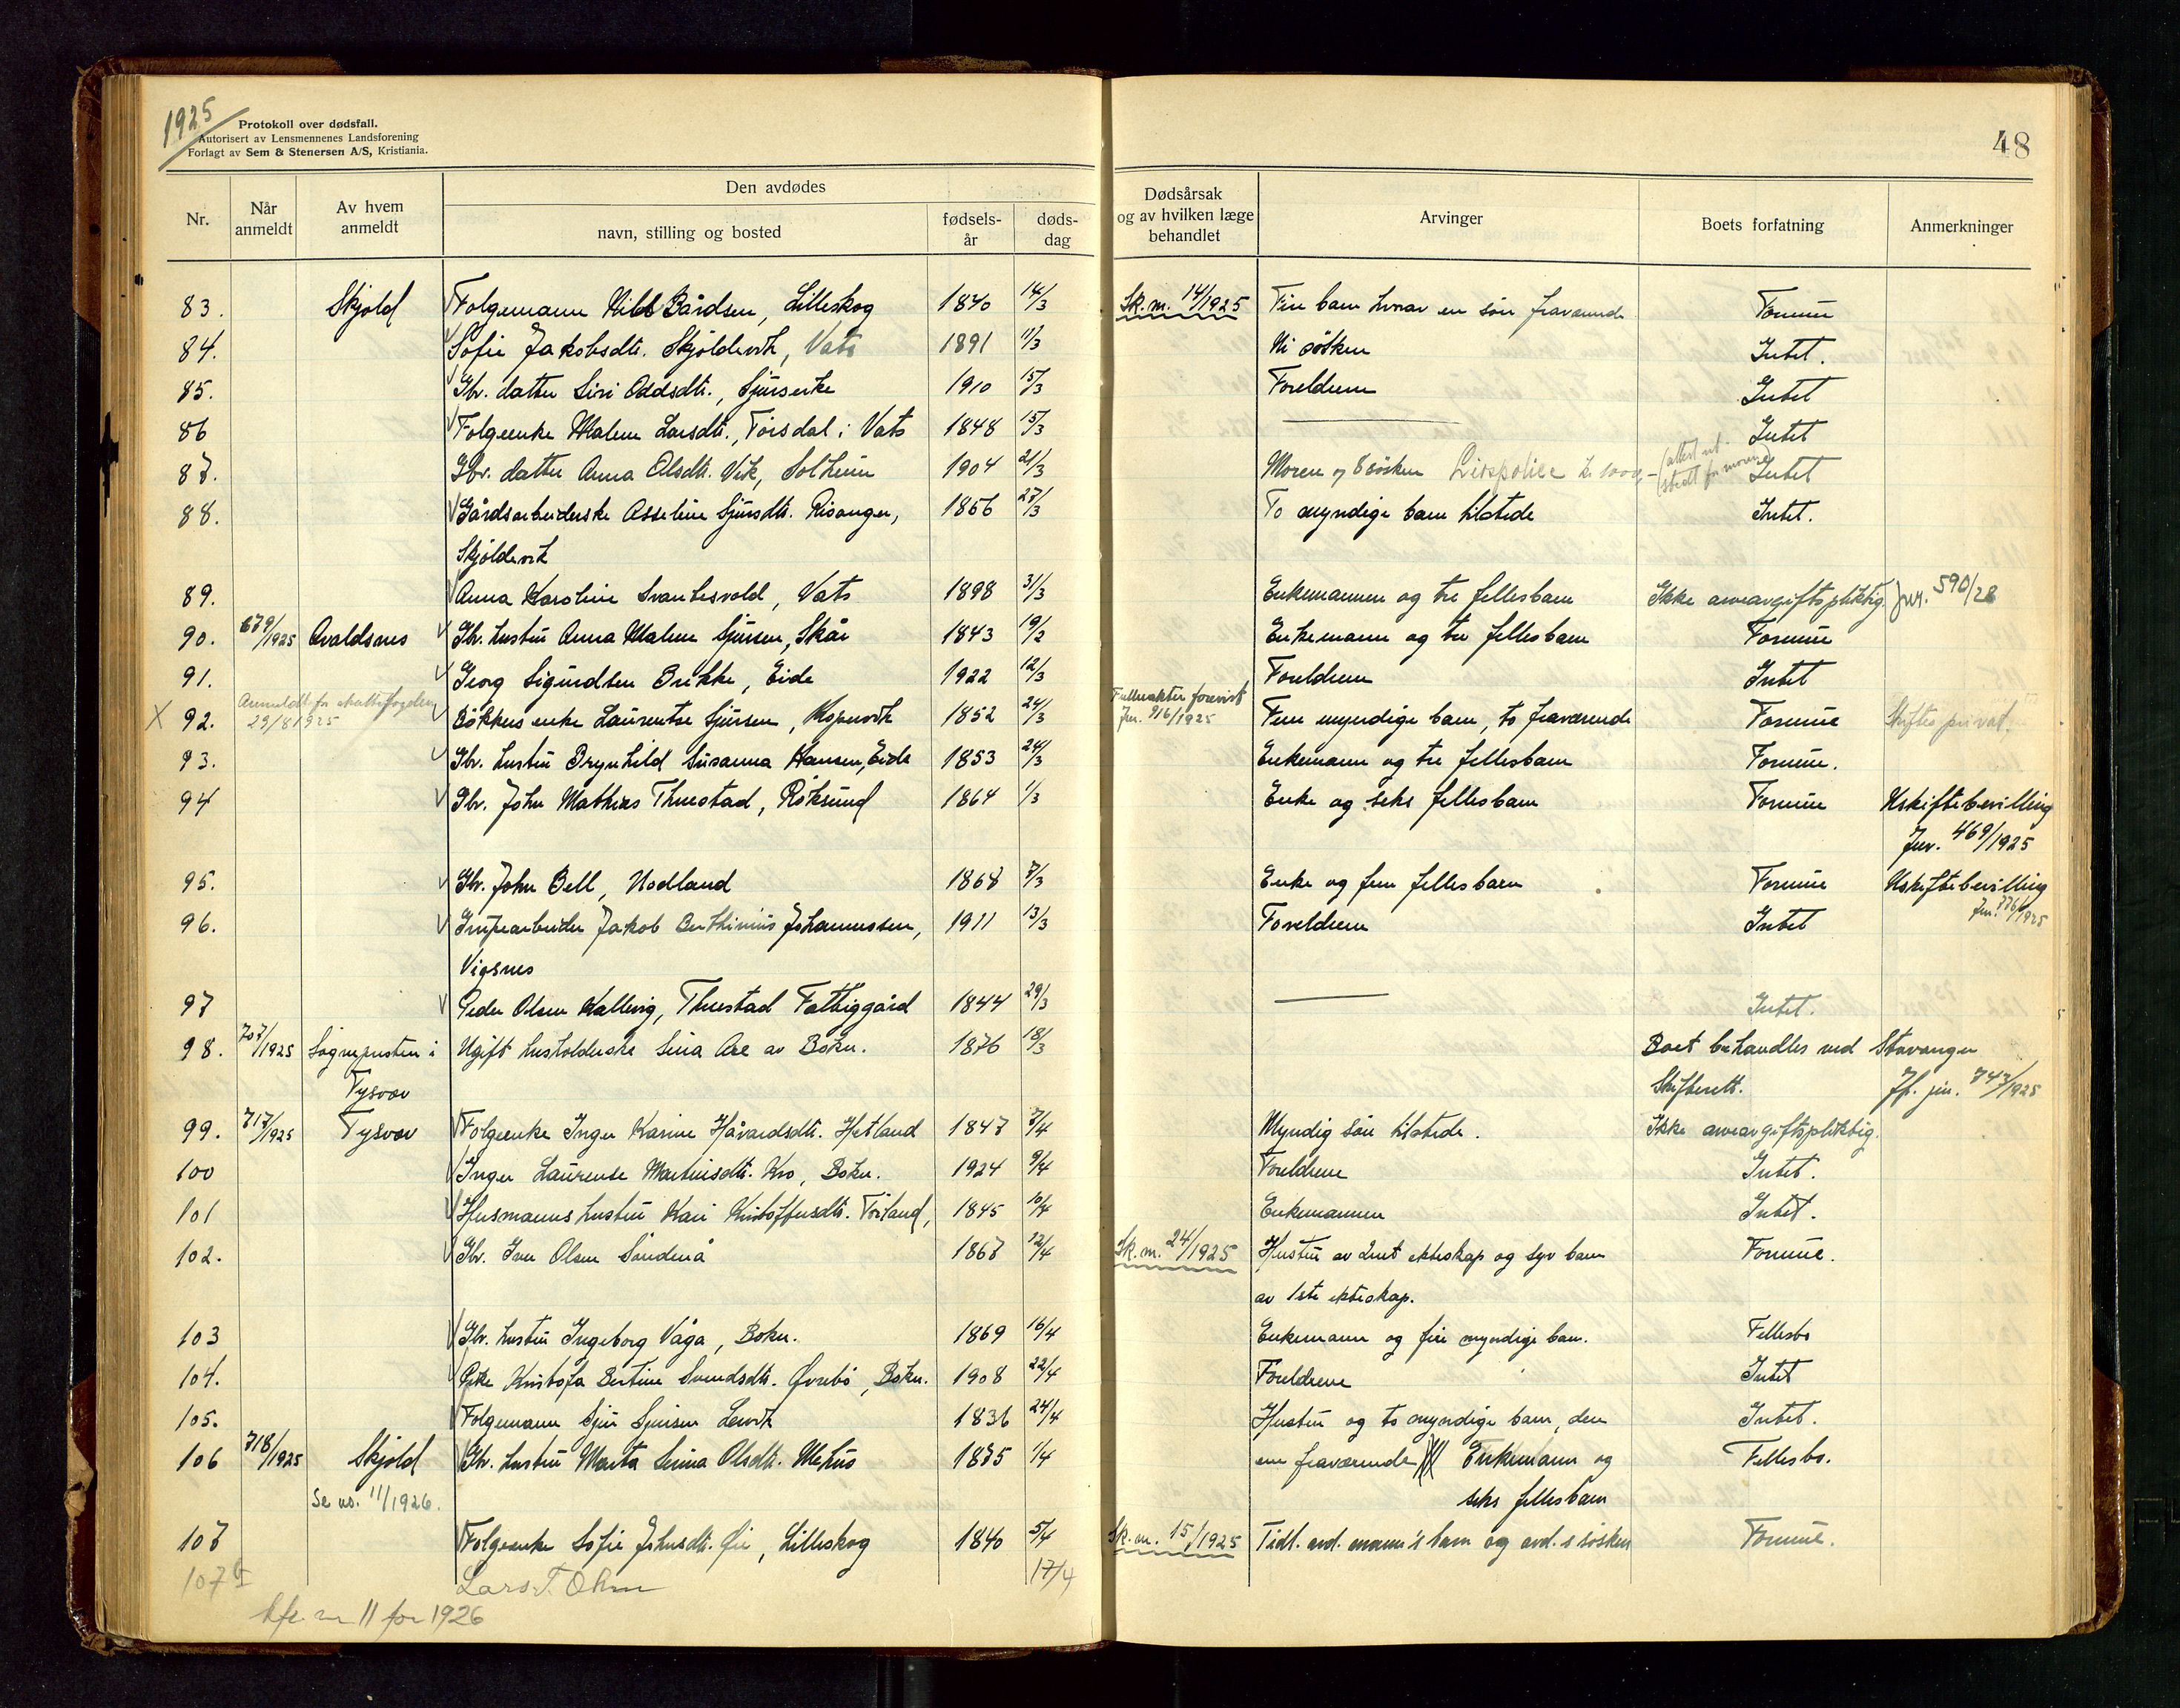 1925
Protokoll over dødsfall.
Autorisert av Lensmennenes Landsforening
Forlagt av Sem & Stenersen A/S, Kristiania.
48
Nr. Når anmeldt Av hvem anmeldt Den avdødes navn, stilling og bosted fødsels-år døds-dag Dødsårsak og av hvilken læge behandlet Arvinger Boets forfatning Anmerkninger
83. Skjold Folgemann Bårdsen, Lilleskog 1840 14/3 Sk.m. 14/1925 Fire barn hvorav en søn fraværende Formue
84. Sofie Jakobsdtr. Skjoldevik, Vats 1891 11/3 Ni søsken Intet.
85. Gbr. datter Siri Oddsdtr., 1910 15/3 Foreldrene Intet
86 Folgeenke Malene Larsdtr., Torsdal i Vats 1848 15/3 — Intet
87. Gbr. datter Anna Olsdtr. Vik, Solheim 1904 21/3 Moren og 8 søsken Livspolice kr 1000,- (attest ut-
stedt for moren) Intet
88. Gårdsarbeiderske Asseline Sjursdtr. Risanger, 1856 27/3 To myndige barn tilstede Intet.
Skjoldevik
89. Anna Karoline Svantesvold, Vats 1898 31/3 Enkemannen og tre fellesbarn Ikke arveavgiftspliktig. Jnr. 590/28
90. 679/1925 Avaldsnes Gbr. hustru Anna Malene Sjursen, Skår 1843 19/2 Enkemann og tre fellesbarn Formue
91. Georg Sigurdsen Brekke, Eide 1922 12/3 Foreldrene Intet
X 92. Anmeldt for skattefogden
29/8 1925 Bøkkers enke Laurentse Sjursen, Kopervik 1852 24/3 forevist
Jnr. 916/1925 Fem myndige barn, to fraværende Formue Skiftes privat.
93. Gbr. hustru Brynhild Susanna Hansen, Eide 1853 24/3 Enkemann og tre fellesbarn Formue.
94 Gbr. John Mathias Thuestad, Røksund 1864 1/3 Enke og seks fellesbarn Formue Uskiftebevilling
Jnr. 469/1925
95. Gbr. John Bell, Nodland 1868 7/3 Enke og fem fellesbarn Formue Uskiftebevilling
Jnr. 776/1925
96. Grubearbeider Jakob Berthinius Johannessen, 1911 13/3 Foreldrene Intet
Vigsnes
97 Peder Olsen Kallevig, Thuestad Fattiggård 1844 29/3 — Intet.
98. 707/1925 Sognepresten i Ugift husholderske Sina Are av Bokn. 1876 18/3 Boet behandles ved Stavanger
Tysvær Skifterett. Jfr. jnr. 743/1925
99. 717/1925 Tysvær Folgeenke Inger Karine Håvardsdtr. Hetland 1847 7/4 Myndig søn tilstede. Ikke arveavgiftspliktig.
100 Inger Laurense Martinsdtr. Kro, Bokn. 1924 9/4 Foreldrene Intet.
101 Husmanns hustru Kari Kristoffersdtr. Førland, 1845 10/4 Enkemannen Intet.
102. Gbr. Iver Olsen Sønderå 1867 12/4 Sk.m. 24/1925 Hustru av 2net ekteskap og syv barn Formue.
av 1ste ekteskap.
103 Gbr. hustru Ingeborg Våga, Bokn. 1869 16/4 Enkemann og fire myndige barn. Fellesbo
104. Pike Kristofa Bertine Svendsdtr. Øvrebø, Bokn. 1908 22/4 Foreldrene Intet
105. Folgemann Sjur Sjursen 1836 24/4 Hustru og to myndige barn, den Intet.
106 718/1925 Skjold Gbr. hustru Marta Serina Olsdtr. Mehus 1875 1/4 ene fraværende Enkemann og Fellesbo.
Se nr. 11/1926. seks fellesbarn
107 Folgeenke Sofie Johnsdtr. Øie, Lilleskog 1840 5/4 Sk.m. 15/1925 Tidl. avd. mann's barn og avd.s søsken Formue.
107 b Lars T. 17/4
nr 11 for 1926